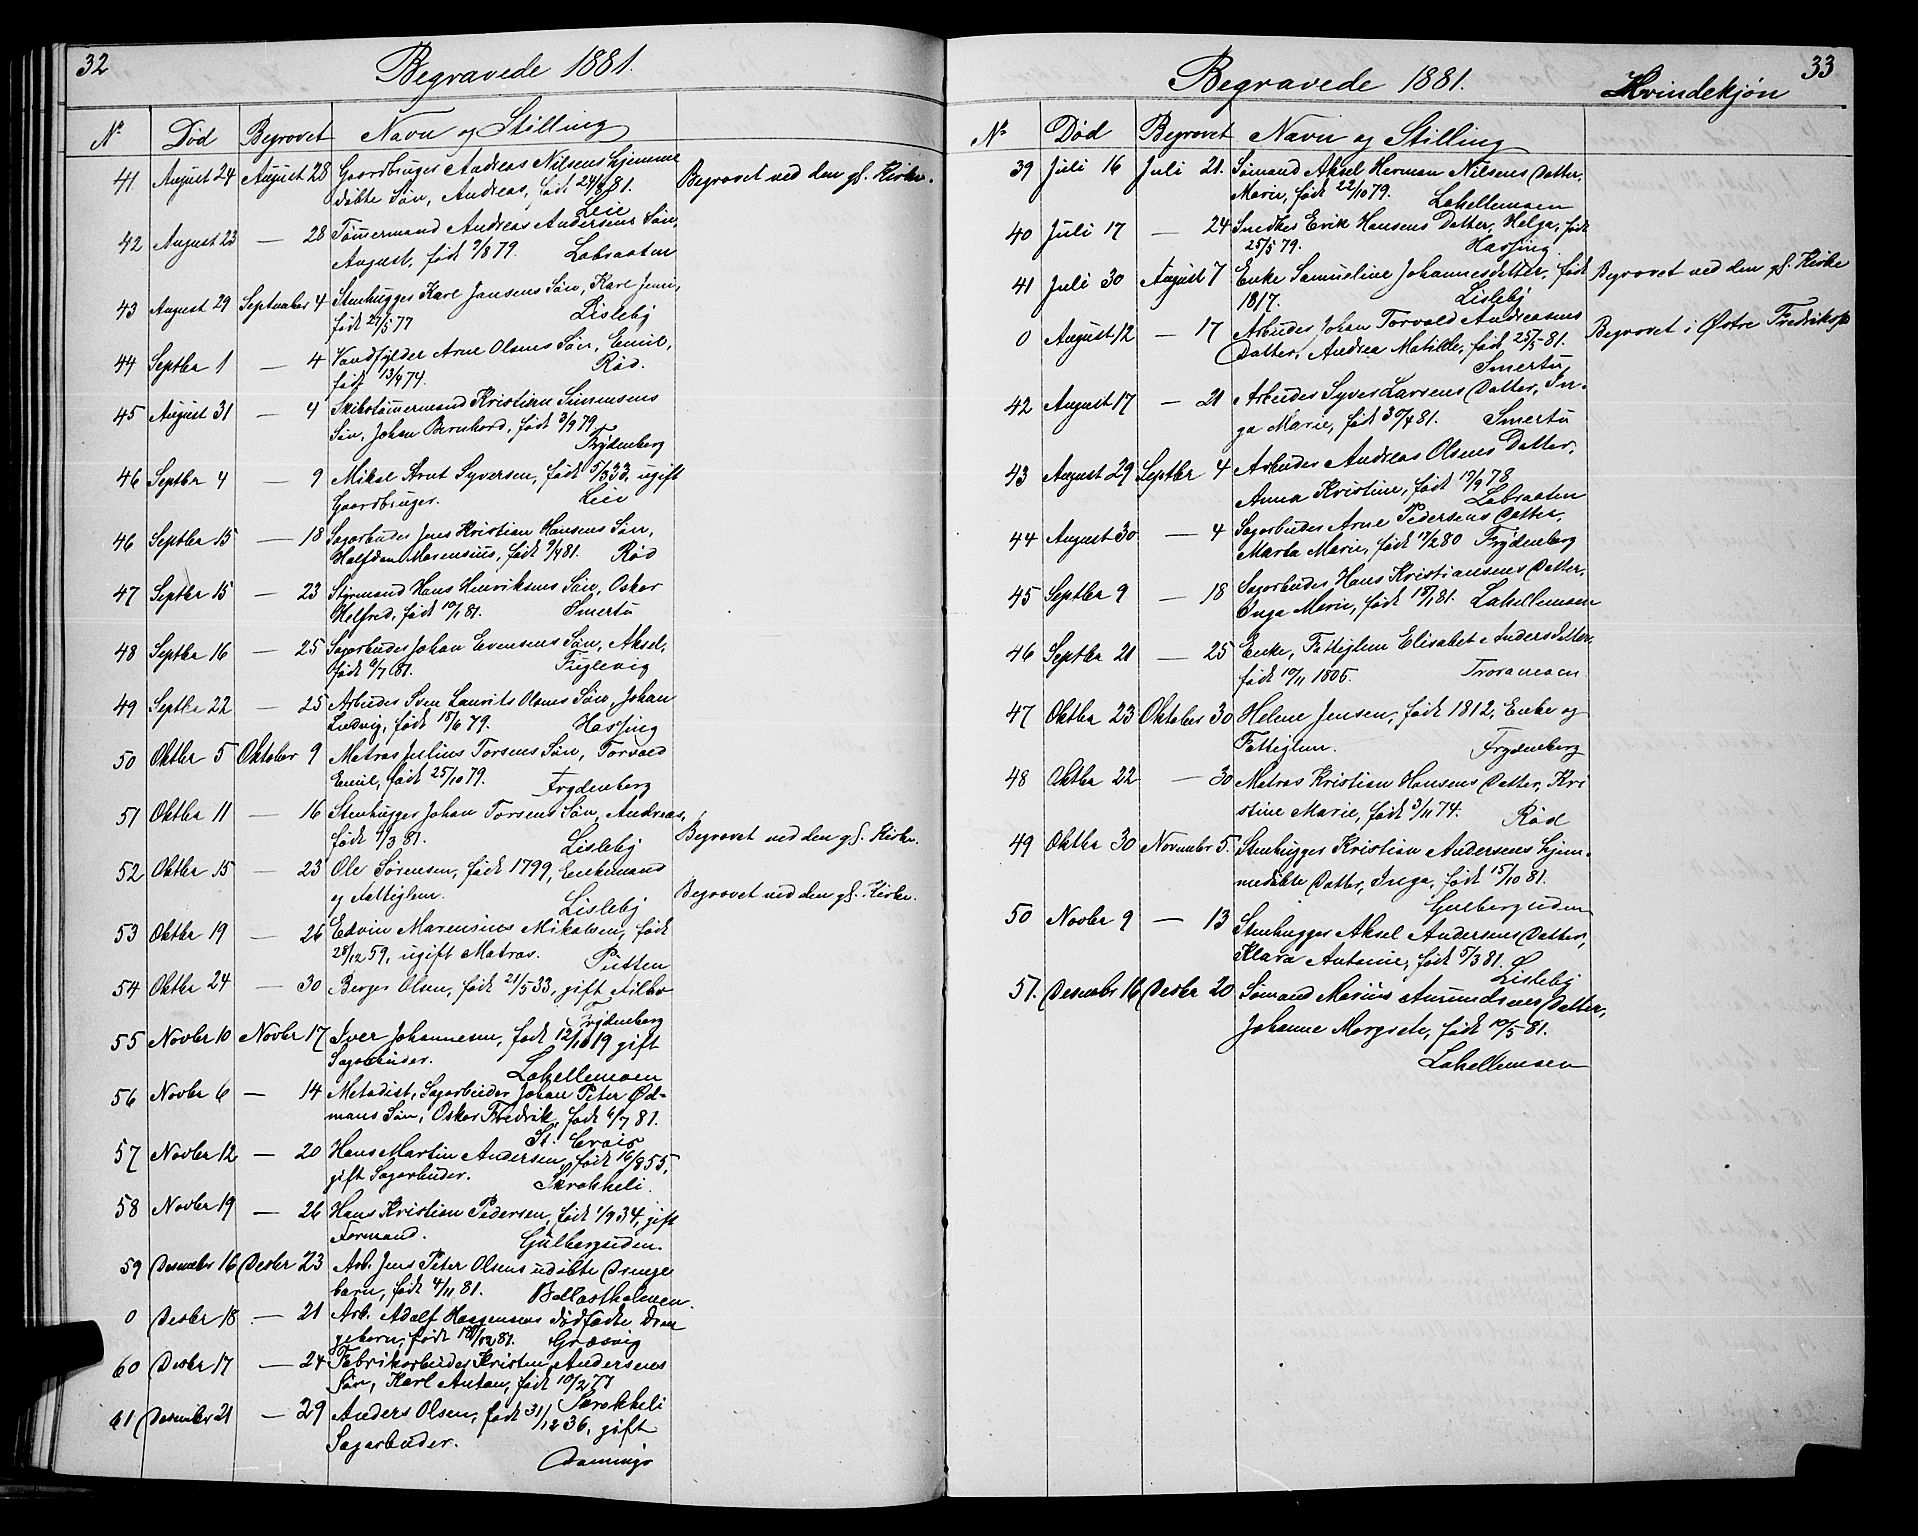 32
Begravede 1881.
No Død Begravet Navn og Stilling
41 August 24 August 28 Gaardbruger Andreas Nilsens hjemme Begravet ved den gl. Kirke.
døbte Søn, Andreas, født 24/8 81.
Leie
42 August 23 — 28 Tømmermand Andreas Andersens Søn,
August, født 9/8 79. Labraaten
43 August 29 September 4 Stenhugger Karl Jansens Søn, Karl
født 27/5 77 Lisleby
44 Septbr 1 — 4 Arne Olsens Søn, Emil,
født 13/4 74. Rød.
45 August 31 — 4 Skibstømmermand Kristian Simensens
Søn, Johan Bernhard, født 3/9 79
Frydenberg
46 Septbr 4 — 9 Mikal Arnt Syversen, født 5/3 33, ugift
Gaardbruger. Leie
46 Septbr 15 — 18 Sagarbeider Jens Kristian Hansens Søn,
Halfdan Marensius, født 9/4 81. Rød
47 Septbr 15 — 23 Styrmand Hans Henriksens Søn, Oskar
Helfred, født 10/1 81. Smertu
48 Septbr 16 — 25 Sagarbeider Johan Evensens Søn, Aksel,
født 6/7 81. Fuglevig
49 Septbr 22 — 25 Arbeider Sven Laurits Olsens Søn, Johan
Ludvig, født 18/6 79. Hassing
50 Oktbr 5 Oktober 9 Matros Julius Torsens Søn, Torvald
Emil, født 25/10 79. Frydenberg
51 Oktbr 11 — 16 Stenhugger Johan Torsens Søn, Andreas,
født 1/3 81. Lisleby Begravet ved den gl. Kirke.
52 Oktbr 15 — 23 Ole Sørensen, født 1799, Enkemand
og Fattiglem. Lisleby Begravet ved den gl. Kirke.
53 Oktbr 19 — 26 Edvin Marensius Mikalsen, født
28/12 59, ugift Matros. Putten
54 Oktbr 24 — 30 Berger Olsen, født 21/5 33, gift
Frydenberg
55 Novbr 10 Novbr 17 Iver Johannesen, født 12/10 19 gift
Sagarbeider. Lahellemoen
56 Novbr 6 — 14 Metodist, Sagarbeider Johan Peter Ød-
mans Søn, Oskar Fredrik, født 6/7 81.
St. Croix
57 Novbr 12 — 20 Hans Martin Andersen, født 16/8 55,
gift Sagarbeider. Skrokkeli.
58 Novbr 19 — 26 Hans Kristian Pedersen, født 1/9 34, gift
Formand. Gulberguden.
59 Desember 16 Desbr 23 Arb. Jens Peter Olsens udøbte Drenge
barn, født 4/11 81. Ballastholmen.
0 Desbr 18 — 21 Arb. Adolf Hagensens dødfødte Dren
gebarn, født 18/12 81. Græsvig
60 Desbr 17 — 24 Fabrikarbeider Kristen Andersens
Søn, Karl Anton, født 10/2 77
Skrokkeli
61 Desember 21 — 29 Anders Olsen, født 31/12 36, gift
Sagarbeider.
33
Begravede 1881. Kvindekjøn
No Død Begravet Navn og Stilling
39 Juli 16 Juli 21. Sømand Aksel Herman Nilsens Datter,
Marie, født 22/10 79. Lahellemoen
40 Juli 17 — 24 Snedker Erik Hansens Datter, Helga, født
25/5 79. Hassing
41 Juli 30 August 7 Enke Samueline Johannesdatter, født Begravet ved den gl. Kirke
1817. Lisleby
0 August 12 — 17 Arbeider Johan Torvald Andreasens Begravet i Østre Fredriksst
Datter, Andrea Matilde, født 25/5 81.
Smertu
42 August 17 — 21 Arbeider Syver Larsens Datter, In-
ga Marie, født 30/4 81. Smertu
43 August 29 Septbr 4 Arbeider Andreas Olsens Datter,
Anna Kristine, født 19/9 78
Labraaten
44 August 30 — 4 Sagarbeider Arne Pedersens Datter,
Marta Marie, født 17/2 80 Frydenberg
45 Septbr 9 — 18 Sagarbeider Hans Kristiansens Datter,
Inga Marie, født 18/1 81. Lahellemoen
46 Septbr 21 — 25 Enke, Fattiglem Elisabet Andersdatter,
født 19/11 1805. Traramoen
47 Oktbr 23 Oktober 30 Helene Jensen, født 1812, Enke og
Fattiglem. Frydenberg
48 Oktbr 22 — 30 Matros Kristian Hansens Datter, Kri
stine Marie, født 3/11 74. Rød
49 Oktbr 30 November 5. Stenhugger Kristian Andersens hjem-
medøbte Datter, Inga, født 15/10 81.
Gulberguden
50 Novbr 9 — 13 Stenhugger Aksel Andersens Datter,
Klara Antonie, født 5/3 81.
Lisleby
51. Desember 16 Desbr 20 Sømand Marius Amundsens Datter,
Johanne Margrete, født 10/5 81.
Lahellemoen